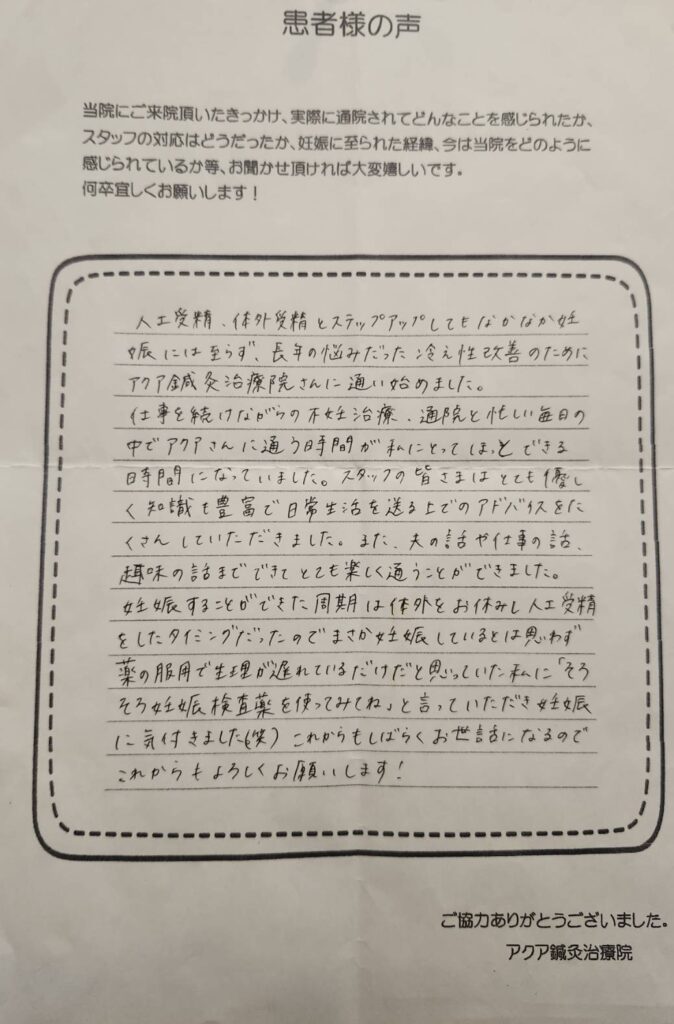 患者様の声
当院にご来院頂いたきっかけ、実際に通院されてどんなことを感じられたか、
スタッフの対応はどうだったか、妊娠に至られた経緯、今は当院をどのように
感じられているか等、お聞かせ頂ければ大変嬉しいです。
何卒宜しくお願いします！
人工受精、体外受精とステップアップしてもなかなか妊
娠には至らず、長年の悩みだった冷え性改善のために
アクア鍼灸治療院さんに通い始めました。
仕事を続けながらの不妊治療、通院と忙しい毎日の
中でアクアさんに通う時間が私にとってほっとできる
時間になっていました。スタッフの皆さまはとても優し
く知識も豊富で日常生活を送る上でのアドバイスをた
くさんしていただきました。また、夫の話や仕事の話、
趣味の話までできてとても楽しく通うことができました。
妊娠することができた周期は体外をお休みし人工受精
をしたタイミングだったのでまさか妊娠しているとは思わず
薬の服用で生理が遅れているだけだと思っていた私に「そろ
そろ妊娠検査薬を使ってみてね」と言っていただき妊娠
に気付きました(笑) これからもしばらくお世話になるので
これからもよろしくお願いします！
ご協力ありがとうございました。
アクア鍼灸治療院